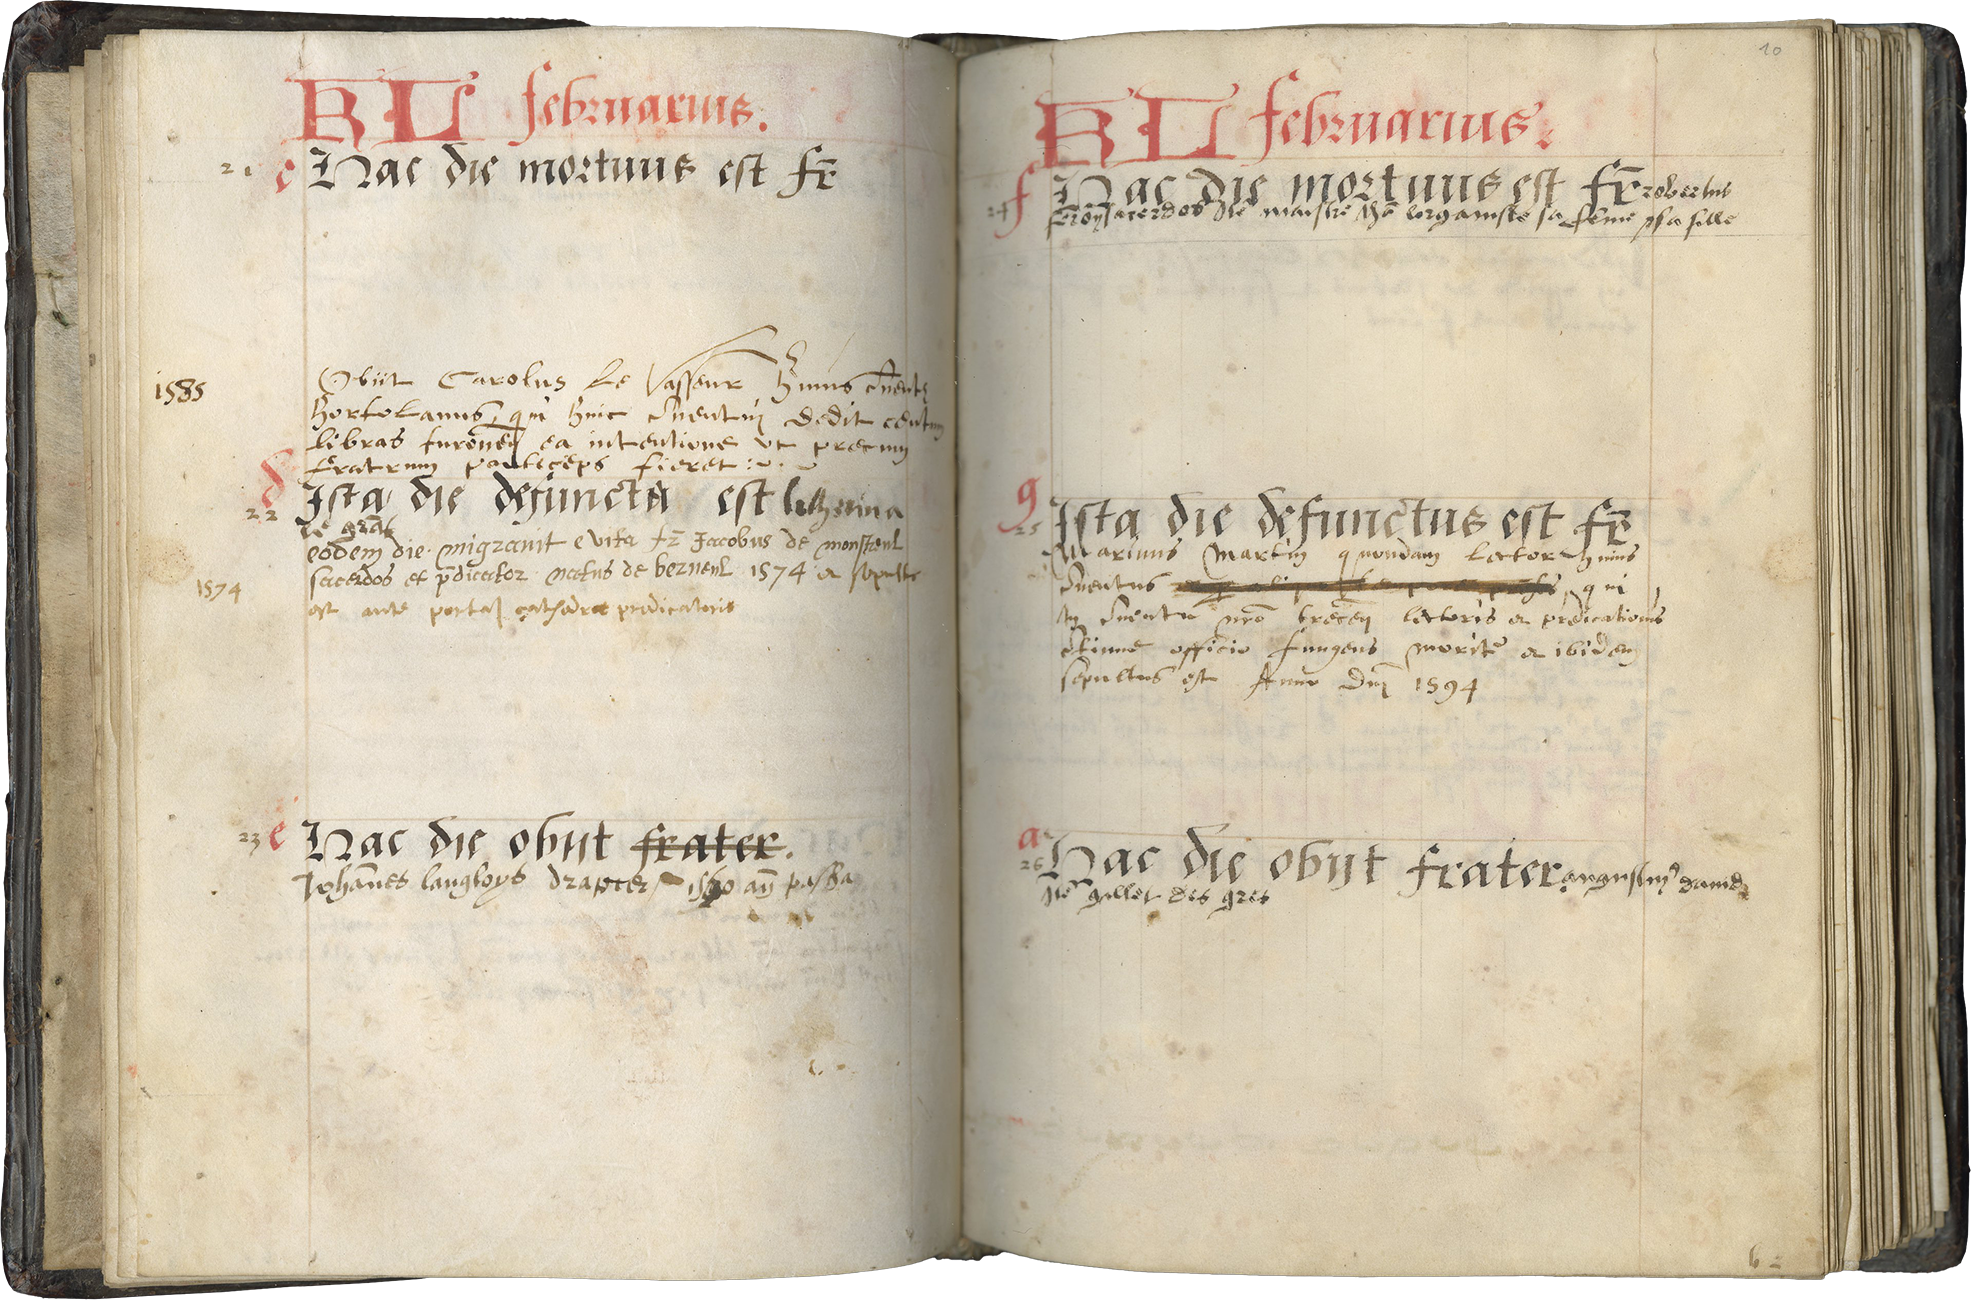 KL februarius.
21 c Hac die mortuus est fr̄
1585
Obiit Carolus Le Vasseur huius cōuentus
hortolanus, qui huic cōuentui dedit centum
libras turonen̄ ea intentione vt precum
fratrum particeps fieret
22 d Ista die defuncta est katherina
le grād
eodem die migravit e vita fr̄ Jacobus de monstreul
sacerdos et p̄dicator natus de berneul 1574 et sepultꝰ
1574
est ante portā cathedrae predicatoris
23 e Hac die obijt frater.
Johānes langloys drapier
10
KL februarius.
24 f Hac die mortuus est fr̄ robertus
sacerdos Itē maistre lorganiste sa fēme & sa fille
25 g Ista die defunctus est fr̄
Marinus Martin quondam lector huius
cōuentus qui
in cōuentu nr̄o lectoris et predicationis
officio fungens moritᷣ et ibidem
sepultus est Anno Dn̄i 1594
26 a Hac die obijt frater augustinꝰ dauid
Itē gillet des gres
b 2